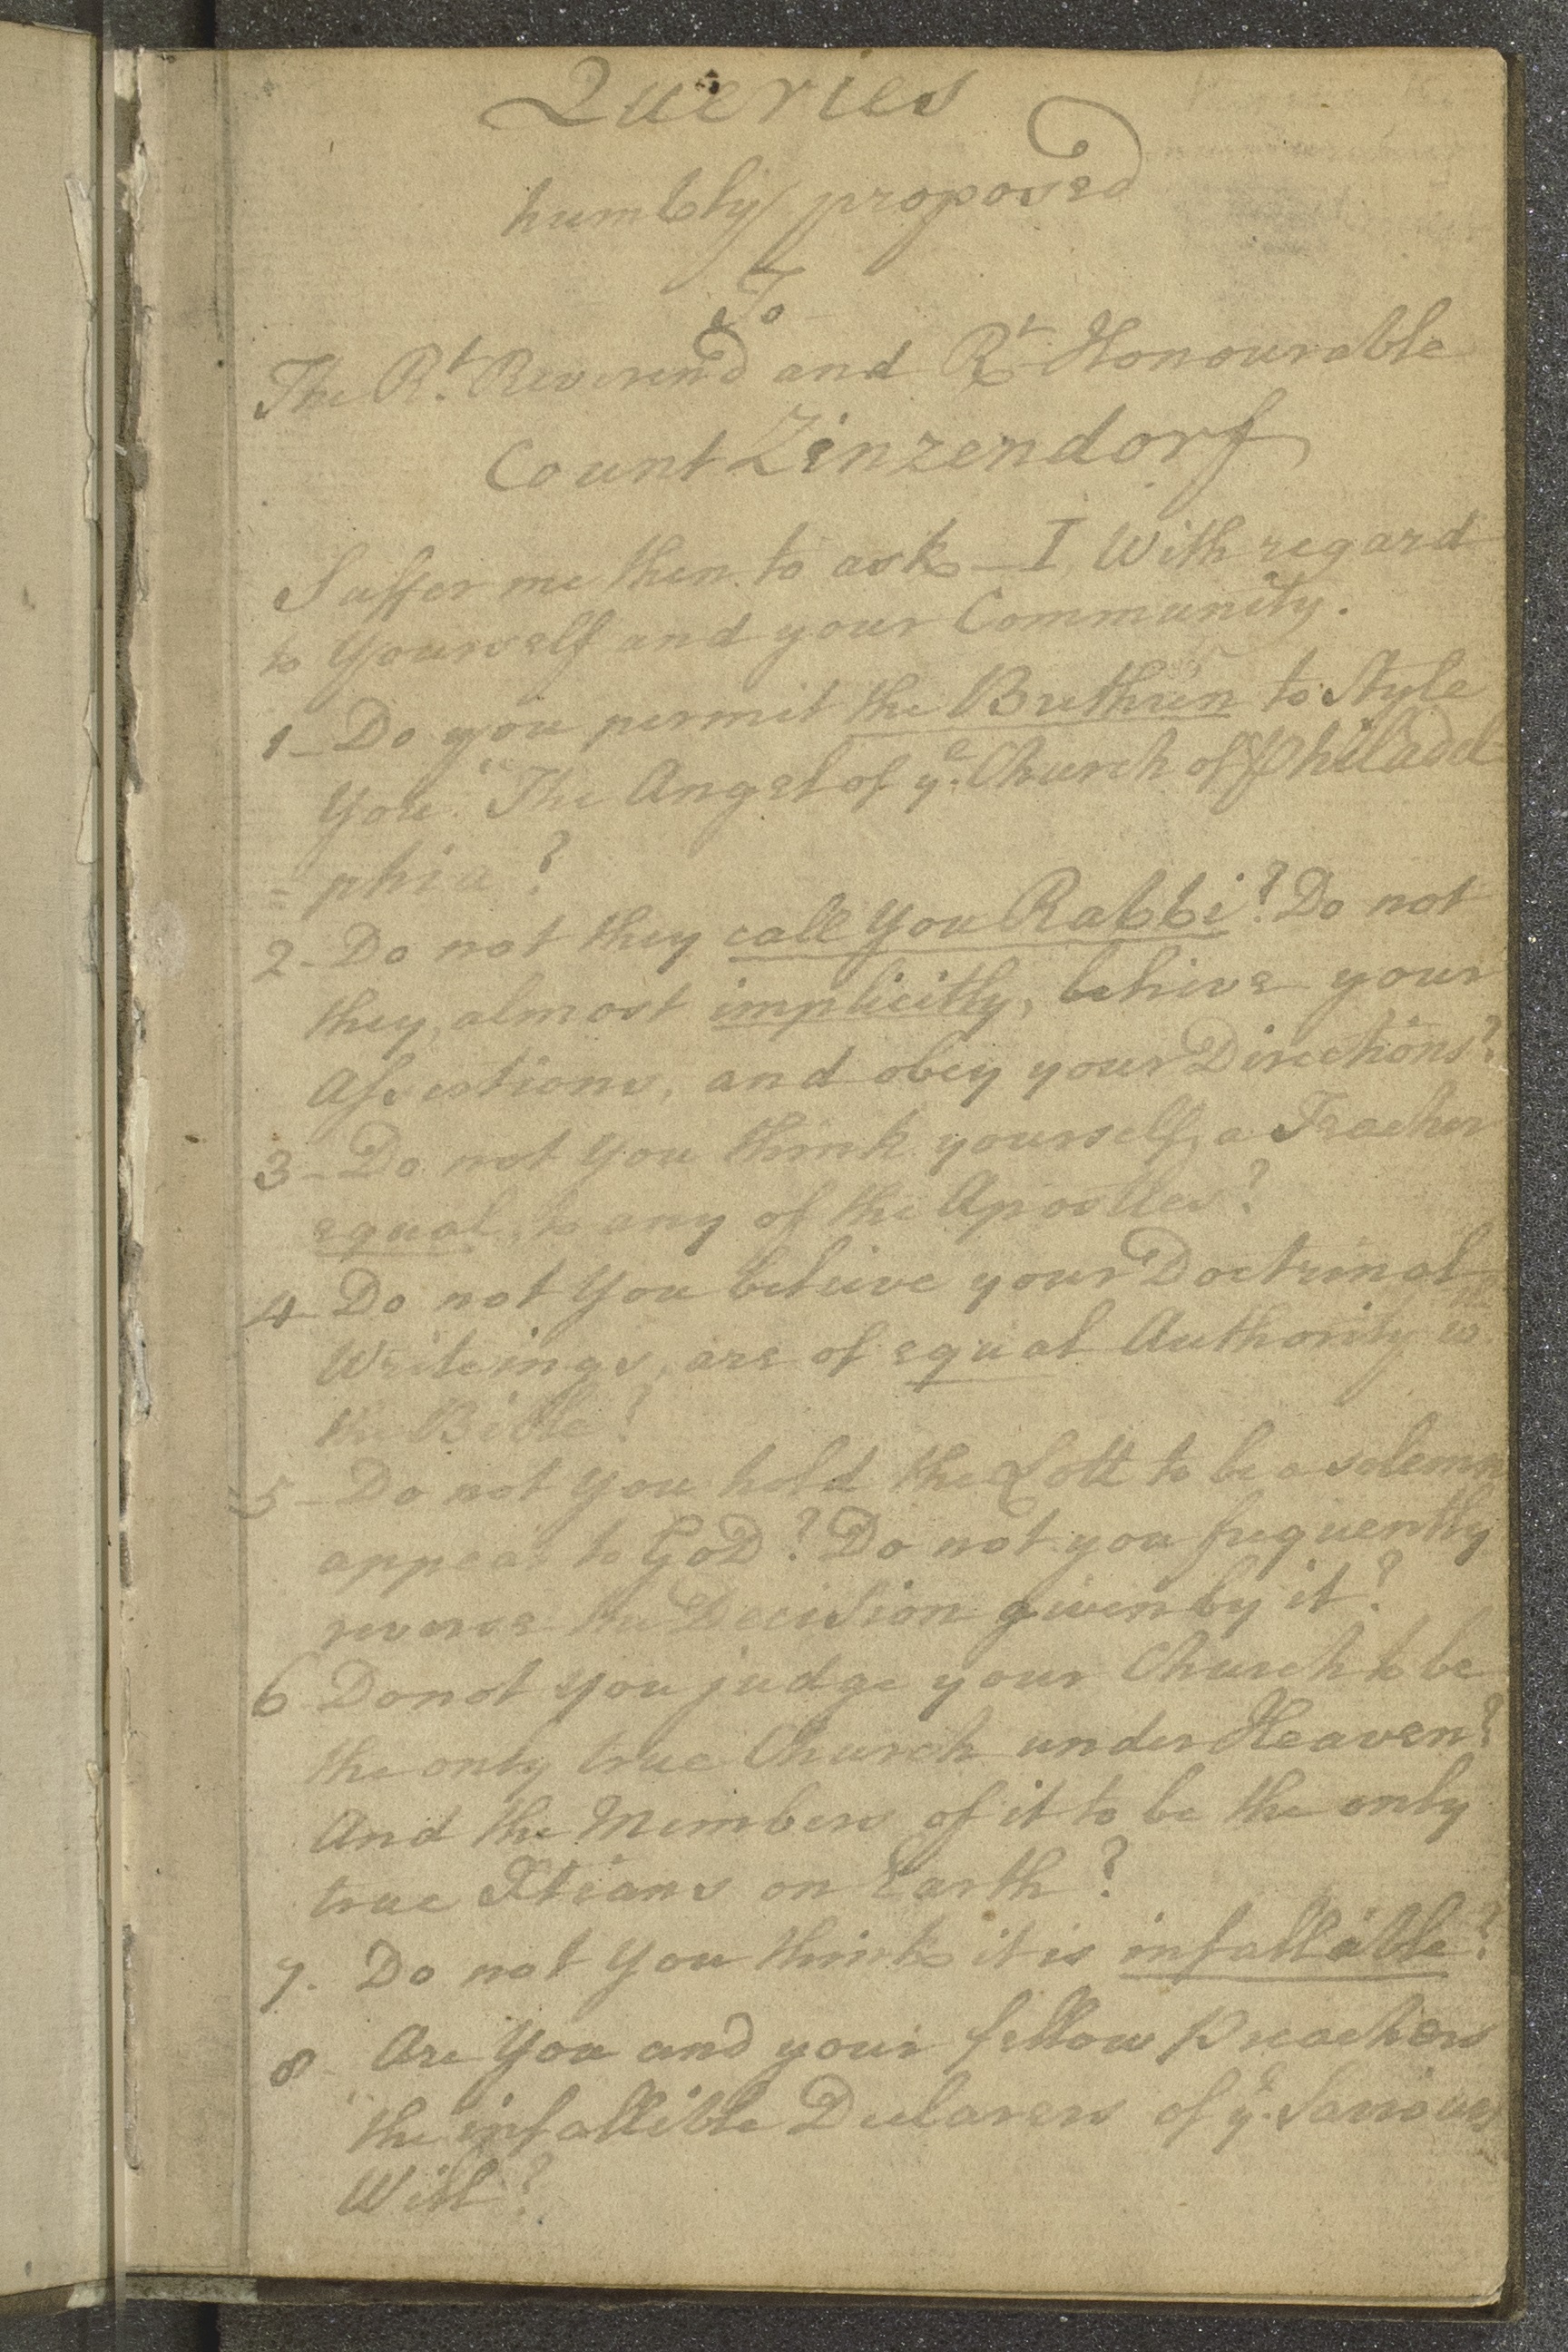 Queries
humbly proposed
To
The Rt. Reverend and Rt Honourable
Count Zinzendorf
Suffer me then to ask – I With regard
to Yourself and your Community.
1 – Do you permit the Brethren to Style
You The Angel of ye. Church of Philadel
= phia?
2 – Do not they call You Rabbi? Do not
they, almost implicitly, believe your
Assertions, and obey your Directions?
3 – Do not You think yourself a Teacher
equal to any of the Apostles?
4 Do not You believe your Doctrinal
Writeings, are of equal Authority
the Bible?
5 – Do not You hold the Lott to be a solemn
appeal to GoD? Do not you frequently
reverse the Decision given by it?
6 Do not You judge your Church to be
the only true Church under Heaven?
And the Members of it to be the only
true Xtians on Earth?
7. Do not You think it is infallible?
8 Are You and your fellow Preachers
the infallible Declarers of ye. Saviours
Will?